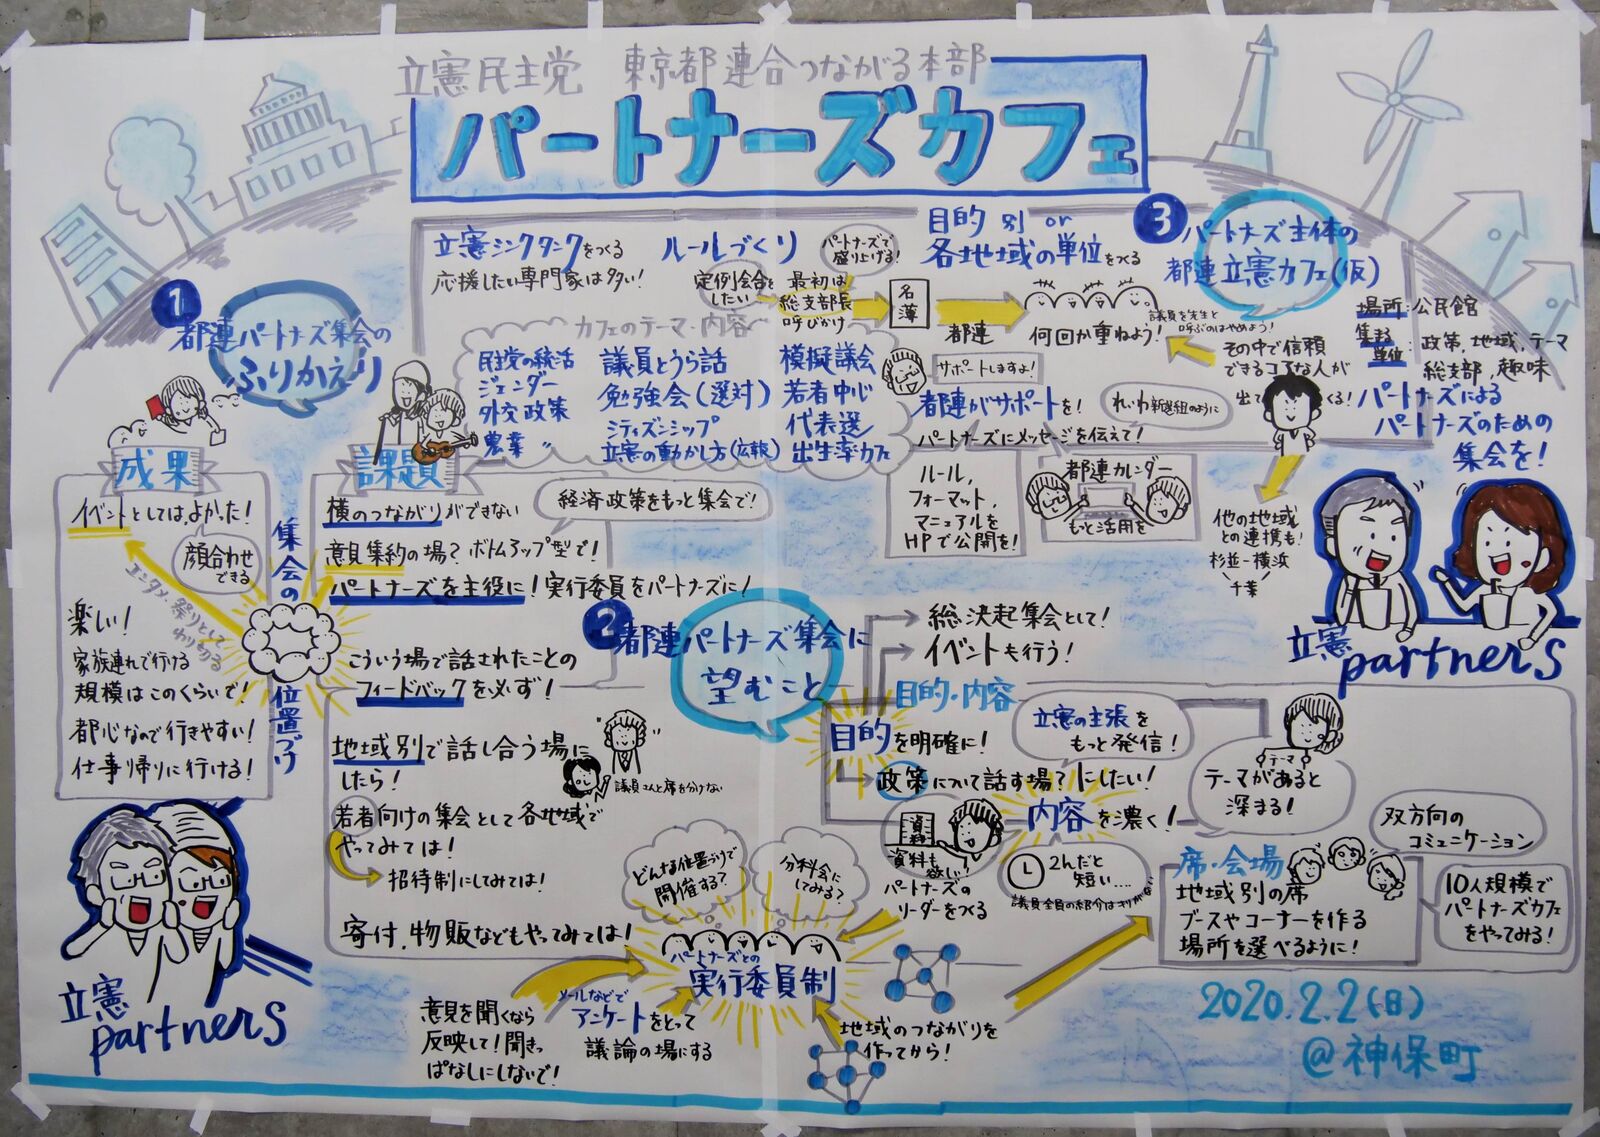 立憲民主党 東京都連合つながる本部
パートナーズカフェ
1
都連パートナーズ集会の
ふりかえり
成果
イベントとしては、よかった!
顔合わせ
できる
エンタメ・祭りとして
わり切る
楽しい!
家族連れで行ける
規模はこのくらいで!
都心なので行きやすい!
仕事帰りに行ける!
集会の
位置づけ
課題
横のつながりができない
経済政策をもっと集会で!
意見集約の場?ボトムアップ型で!
パートナーズを主役に!実行委員をパートナーズに!
こういう場で話されたことの
フィードバックを必ず!
地域別で話し合う場に
したら!
議員さんと席を分けない
若者向けの集会として各地域で
やってみては!
招待制にしてみては!
寄付、物販などもやってみては!
立憲
partners
2
都連パートナーズ集会に
望むこと
総決起集会として!
イベントも行う!
目的・内容
目的を明確に!
立憲の主張を
もっと発信!
政策について話す場?にしたい!
テーマ
テーマがあると
深まる!
内容を濃く!
資料
資料も
欲しい?
パートナーズの
リーダーをつくる
2hだと
短い....
席・会場
地域別の席
ブースやコーナーを作る
場所を選べるように!
双方向の
コミュニケーション
10人規模で
パートナーズカフェ
をやってみる!
どんな位置づけで
開催する?
分科会
にしてみる?
パートナーズとの
実行委員制
意見を聞くなら
反映して!聞きっ
ぱなしにしないで!
メールなどで
アンケートをとって
議論の場にする
地域のつながりを
作ってから!
3
パートナーズ主体の
都連立憲カフェ(仮)
立憲シンクタンクをつくる
応援したい専門家は多い!
ルールづくり
定例会合を
したい
最初は
総支部長
呼びかけ
パートナーズで
盛り上げる!
名簿
都連
目的別or
各地域の単位をつくる
何回か重ねよう!
議員を先生と
呼ぶのはやめよう!
その中で信頼
できるコアな人が
出てくる!
場所:公民館
集まる
単位:政策、地域、テーマ
総支部、趣味
カフェのテーマ・内容
民主党の総括
ジェンダー
外交政策
農業〃
議員とうら話
勉強会(選対)
シティズンシップ
立憲の動かし方(広報)
模擬議会
若者中心
代表選
出生率カフェ
サポートしますよ!
都連がサポートを!
れいわ新選組のように
パートナーズにメッセージを伝えて!
ルール、
フォーマット、
マニュアルを
HPで公開を!
都連カレンダー
もっと活用を
パートナーズによる
パートナーズのための
集会を!
他の地域
との連携も!
杉並-横浜
千葉
立憲
partners
2020.2.2(日)
@神保町